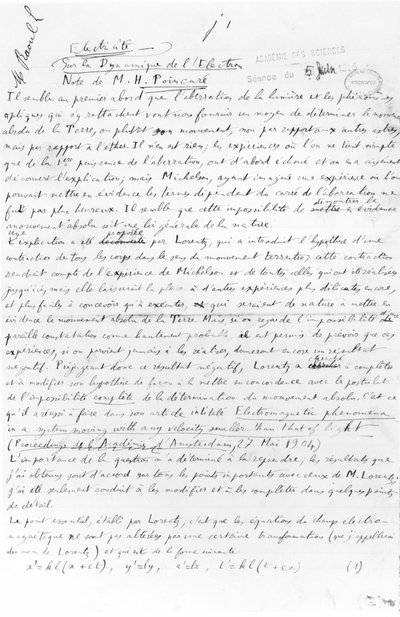 j 1
M Raoult
Electricité. —
Sur la Dynamique de l'Electron
Note de M. H. Poincaré
ACADÉMIE DES SCIENCES
Séance du 5 Juin
ARCHIVES
Il semble au premier abord que l'aberration de la lumière et les phénomènes
optiques qui s'y rattachent vont nous fournir un moyen de déterminer le mouvement
absolu de la Terre, ou plutôt son mouvement, non par rapport aux autres astres,
mais par rapport à l'éther. Il n'en est rien; les expériences où l'on ne tient compte
que de la 1ère puissance de l'aberration, ont d'abord échoué et on en a aisément
découvert l'explication; mais Michelson, ayant imaginé une expérience où l'on
pouvait mettre en évidence les termes dépendant du carré de l'aberration ne
fut pas plus heureux. Il semble que cette impossibilité de démontrer le
mouvement absolu soit une loi générale de la nature.
Une explication a été proposée par Lorentz, qui a introduit l'hypothèse d'une
contraction de tous les corps dans le sens du mouvement terrestre; cette contraction
rendrait compte de l'expérience de Michelson et de toutes celles qui ont été réalisées
jusqu'ici, mais elle laisserait la place à d'autres expériences plus délicates encore,
et plus faciles à concevoir qu'à exécuter, qui seraient de nature à mettre en
évidence le mouvement absolu de la Terre. Mais, si on regarde l'impossibilité d'une
pareille constatation comme hautement probable, il est permis de prévoir que ces
expériences, si on parvient jamais à les réaliser, donneront encore un résultat
négatif. Préjugeant donc ce résultat négatif, Lorentz a cherché à compléter
et à modifier son hypothèse de façon à la mettre en concordance avec le postulat
de l'impossibilité complète de la détermination du mouvement absolu. C'est ce
qu'il a réussi à faire dans son article intitulé Electromagnetic phenomena
in a system moving with any velocity smaller than that of light
(Proceedings de l'Académie d'Amsterdam, 27 Mai 1904).
L'importance de la question m'a déterminé à la reprendre; les résultats que
j'ai obtenus sont d'accord sur tous les points importants avec ceux de M. Lorentz;
j'ai été seulement conduit à les modifier et à les compléter dans quelques points
de détail.
Le point essentiel, établi par Lorentz, c'est que les équations du champ électro-
magnétique ne sont pas altérées par une certaine transformation (que j'appellerai
du nom de Lorentz) et qui est de la forme suivante:
x' = kl(x + εt), y' = ly, z' = lz, t' = kl(t + εx) (1)